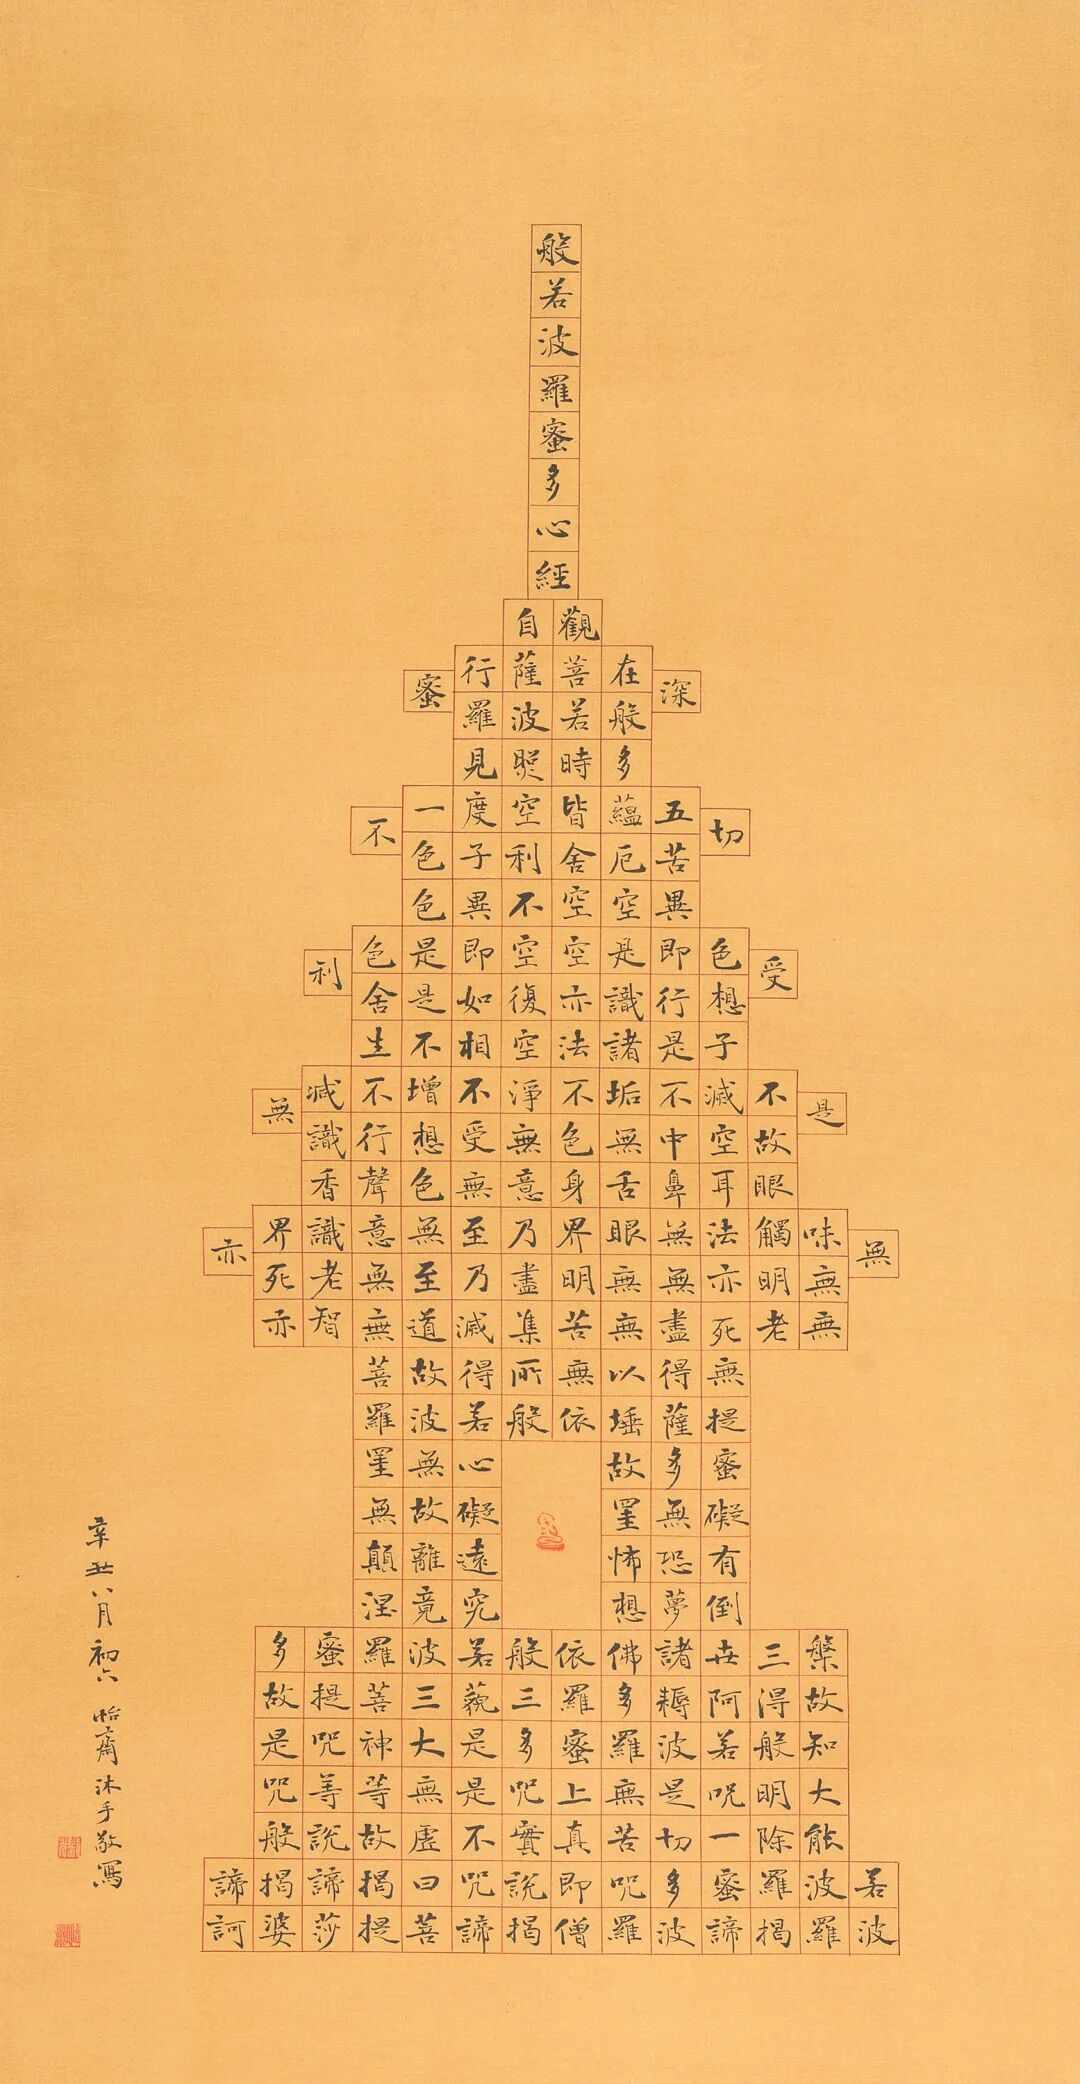 般若波羅蜜多心經
觀自
在菩薩行
深般若波羅蜜
多時照見
五蘊皆空度一
切苦厄舍利子色不
異空空不異色
色即是空空即是色
受想行識亦復如是舍利
子是諸法空相不生
不滅不垢不淨不增不減
是故空中無色無受想行識無
眼耳鼻舌身意無色聲香
味觸法無眼界乃至無意識界
無無明亦無無明盡乃至無老死亦
無老死盡無苦集滅道無智亦
無得以無所得故菩
提薩埵依般若波羅
蜜多故心無罣
礙無罣礙故無
有恐怖遠離顛
倒夢想究竟涅
槃三世諸佛依般若波羅蜜多
故得阿耨多羅三藐三菩提故
知般若波羅蜜多是大神咒是
大明咒是無上咒是無等等咒
能除一切苦真實不虛故說般
若波羅蜜多咒即說咒曰揭諦揭諦
波羅揭諦波羅僧揭諦菩提莎婆訶
辛丑八月初六 怡齋沐手敬寫